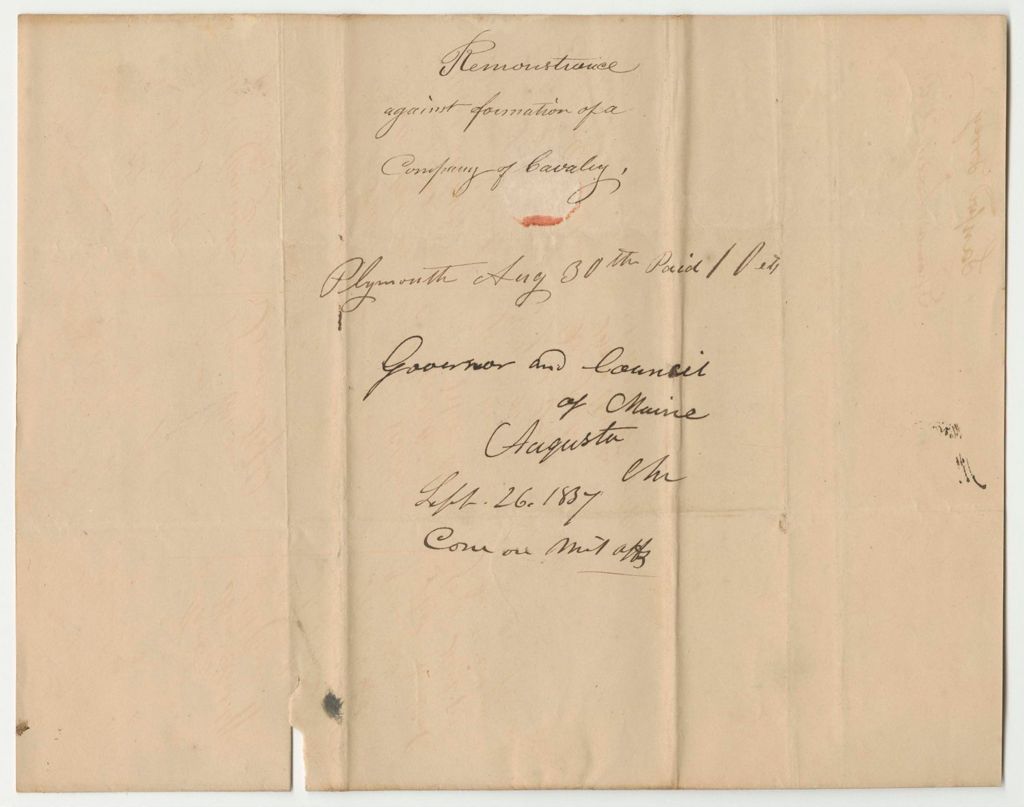 Remonstrance
against formation of a
Company of Cavalry,
Plymouth Aug 30th Paid 10 cts
Governor and Council
of Maine
Augusta
Me
Sept. 26. 1837
Com on Mil affs